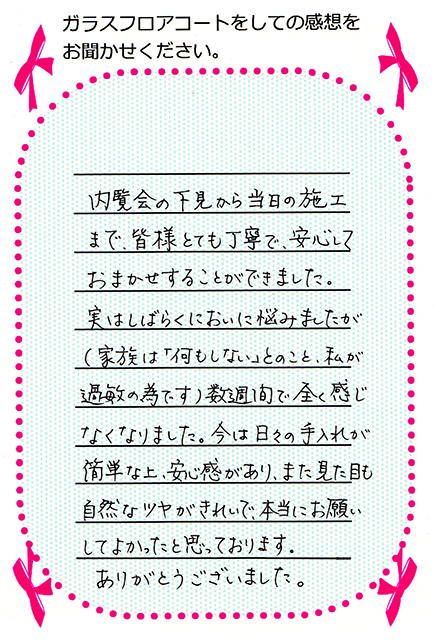 ガラスフロアコートをしての感想を
お聞かせください。
内覧会の下見から当日の施工
まで、皆様とても丁寧で、安心して
おまかせすることができました。
実はしばらくにおいに悩みましたが
(家族は「何もしない」とのこと、私が
過敏の為です)数週間で全く感じ
なくなりました。今は日々の手入れが
簡単な上、安心感があり、また見た目も
自然なツヤがきれいで、本当にお願い
してよかったと思っております。
ありがとうございました。